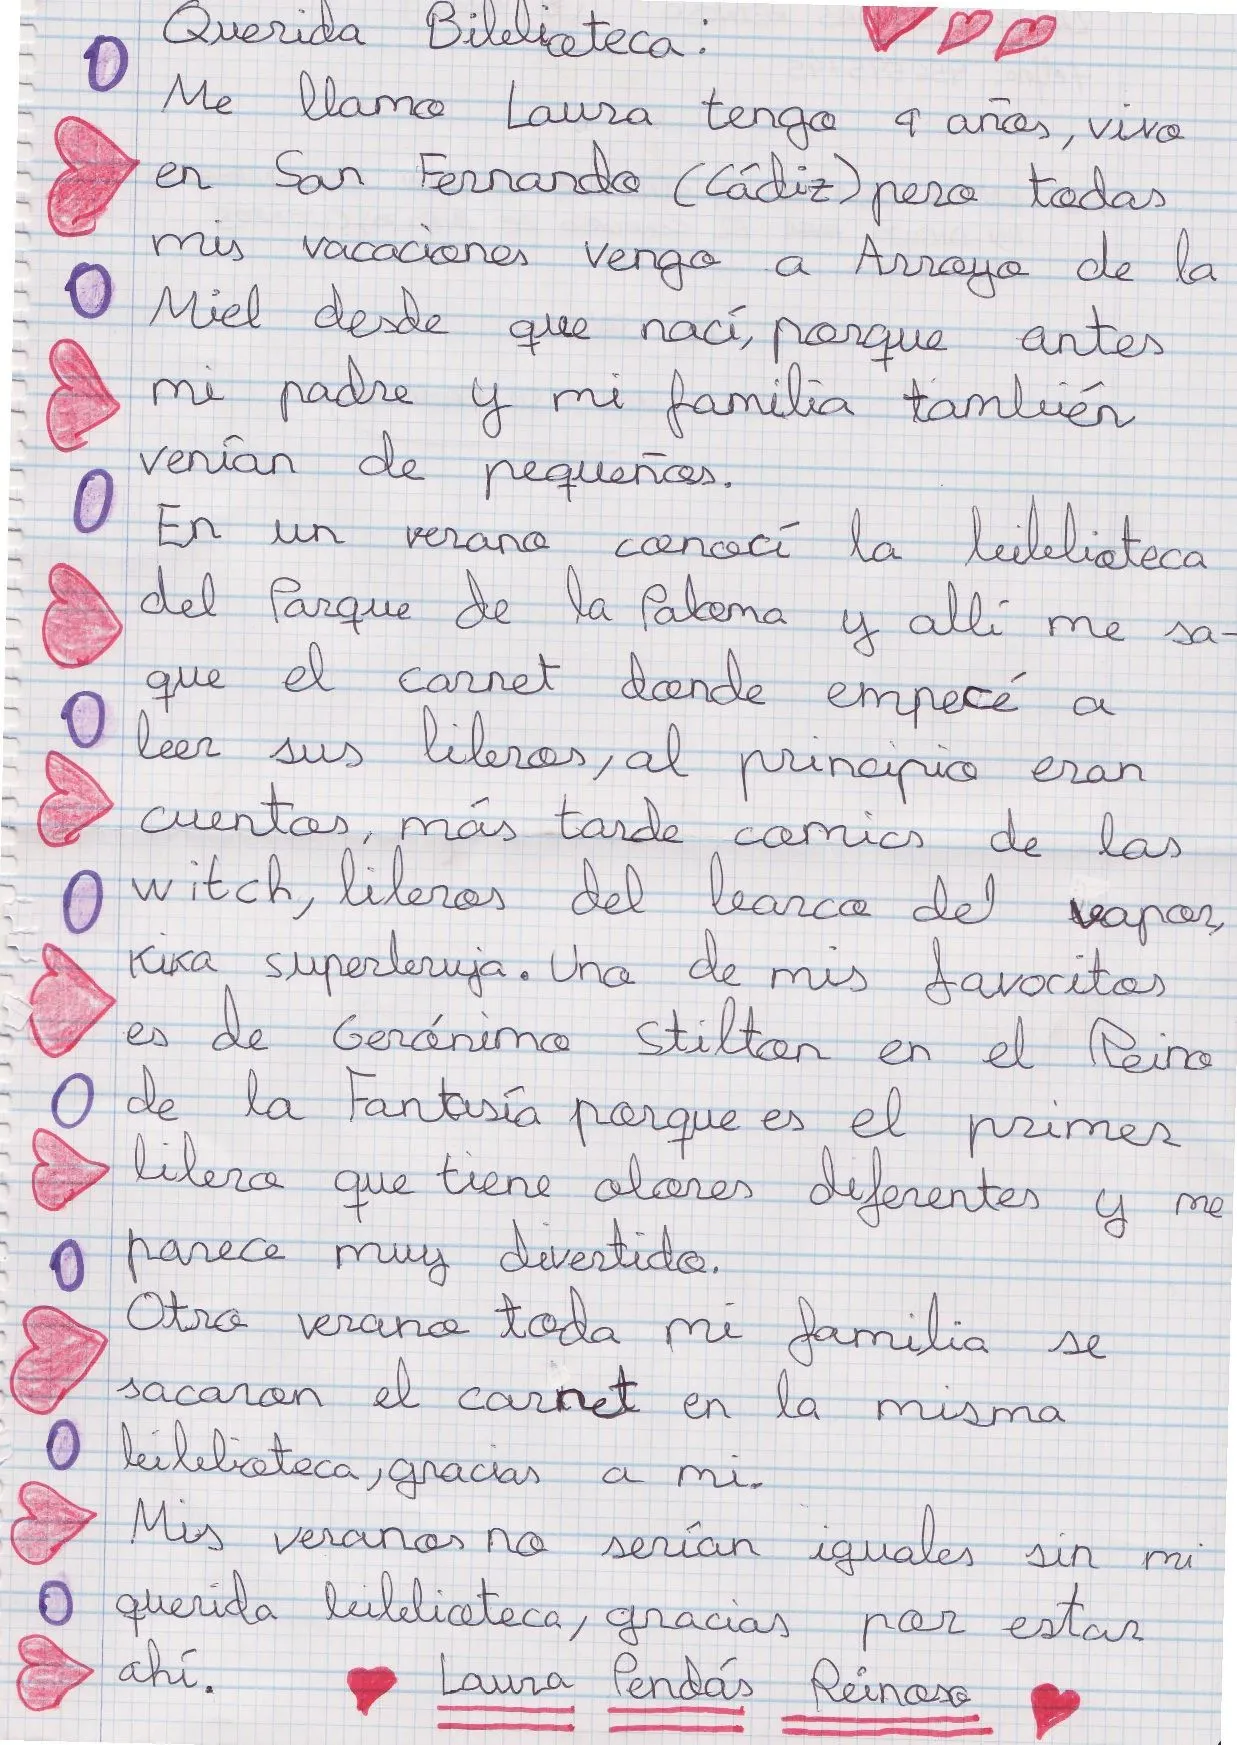 Querida Biblioteca:
Me llamo Laura tengo 9 años, vivo
en San Fernando (Cádiz) pero todas
mis vacaciones vengo a Arroyo de la
Miel desde que nací, porque antes
mi padre y mi familia también
venían de pequeños.
En un verano conocí la biblioteca
del Parque de la Paloma y allí me sa-
que el carnet donde empecé a
leer sus libros, al principio eran
cuentos, más tarde comics de las
witch, libros del barco del vapor,
Kika superbruja. Uno de mis favocitos
es de Gerónimo Stilton en el Reino
de la Fantasía porque es el primer
libro que tiene olores diferentes y me
parece muy divertido.
Otro verano toda mi familia se
sacaron el carnet en la misma
biblioteca, gracias a mi.
Mis veranos no serían iguales sin mi
querida biblioteca, gracias por estar
ahí. Laura Pendás Reinoso